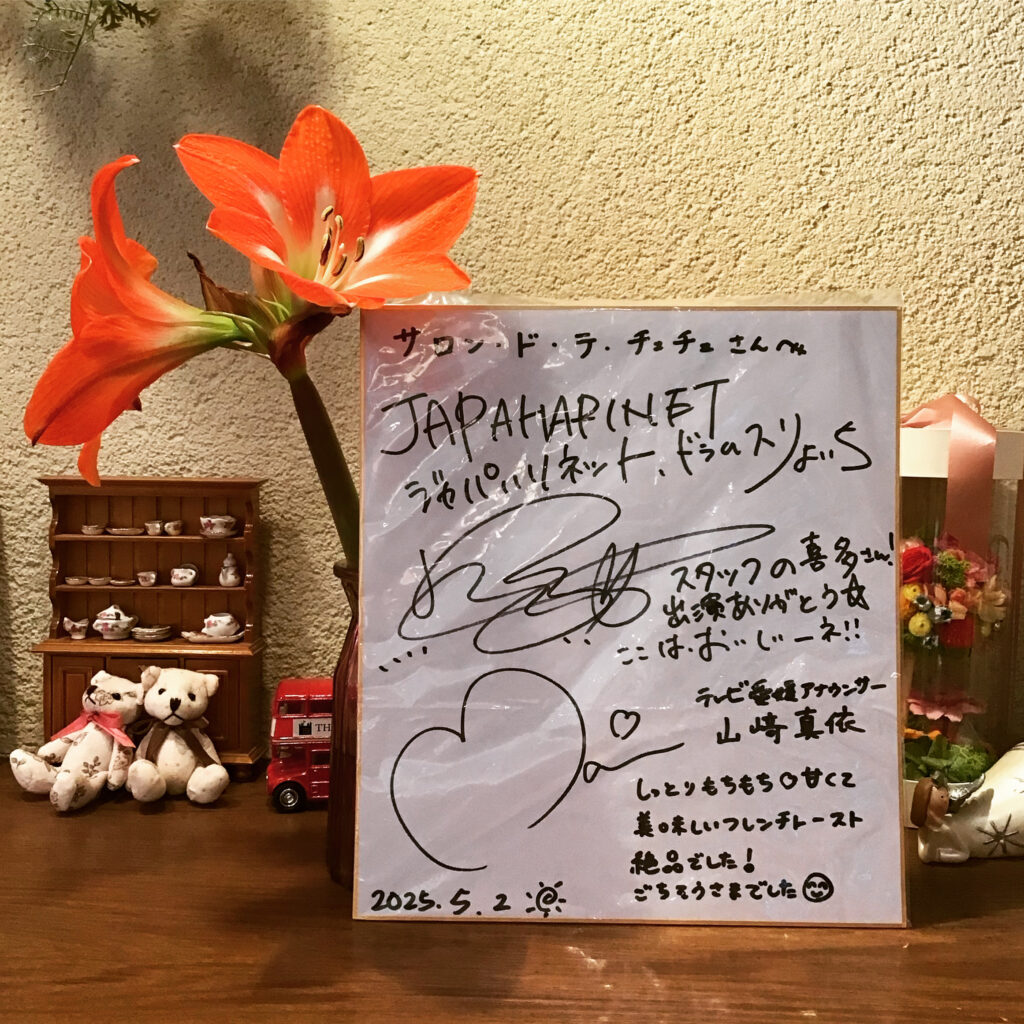 サロン・ド・テ・チェチェさんへ
JAPAHARINET
ジャパハリネット、ドラムスりょいち
スタッフの喜多さん!
出演ありがとう☆
ここは、おいじーネ!!
テレビ愛媛アナウンサー
山﨑真依
しっとりもちもち♡甘くて
美味しいフレンチトースト
絶品でした!
ごちそうさまでした
2025.5.2
TH